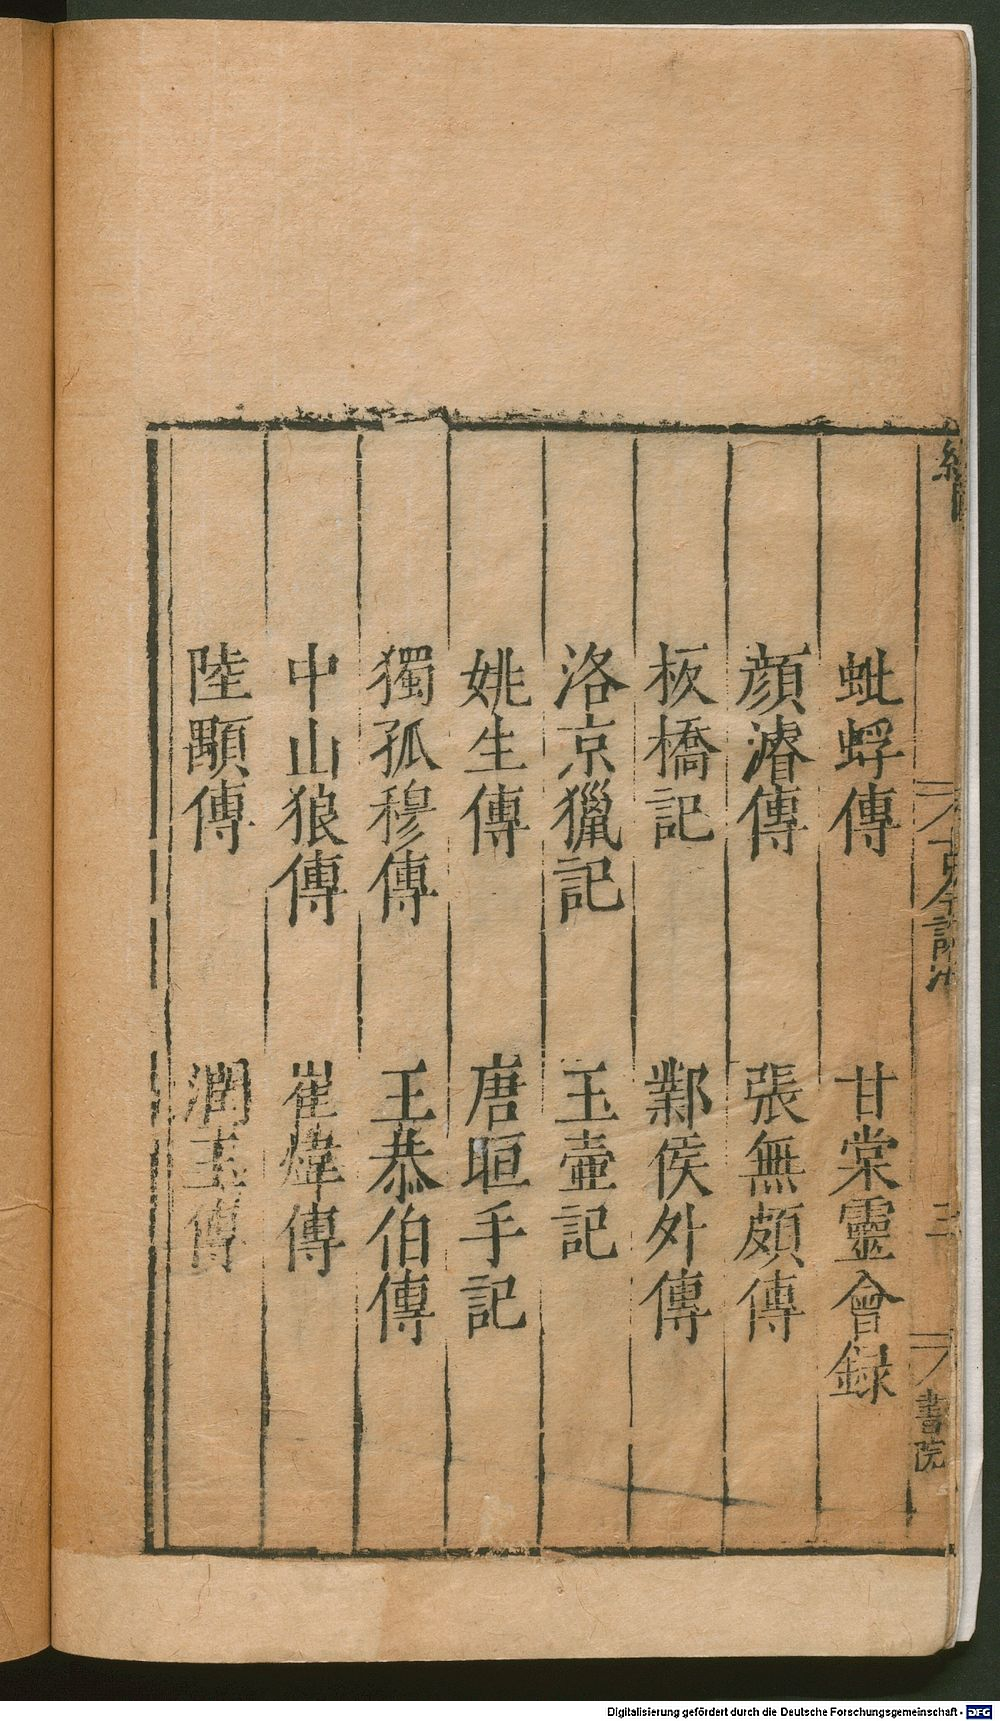 蚍蜉傳 甘棠靈會録
顔濬傳 張無頗傳
板橋記 鄴侯外傳
洛京獵記 玉壺記
姚生傳 唐晅手記
獨孤穆傳 王恭伯傳
中山狼傳 崔煒傳
陸顒傳 潤玉傳
古今說海
三
書院
Digitalisierung gefördert durch die Deutsche Forschungsgemeinschaft - DFG